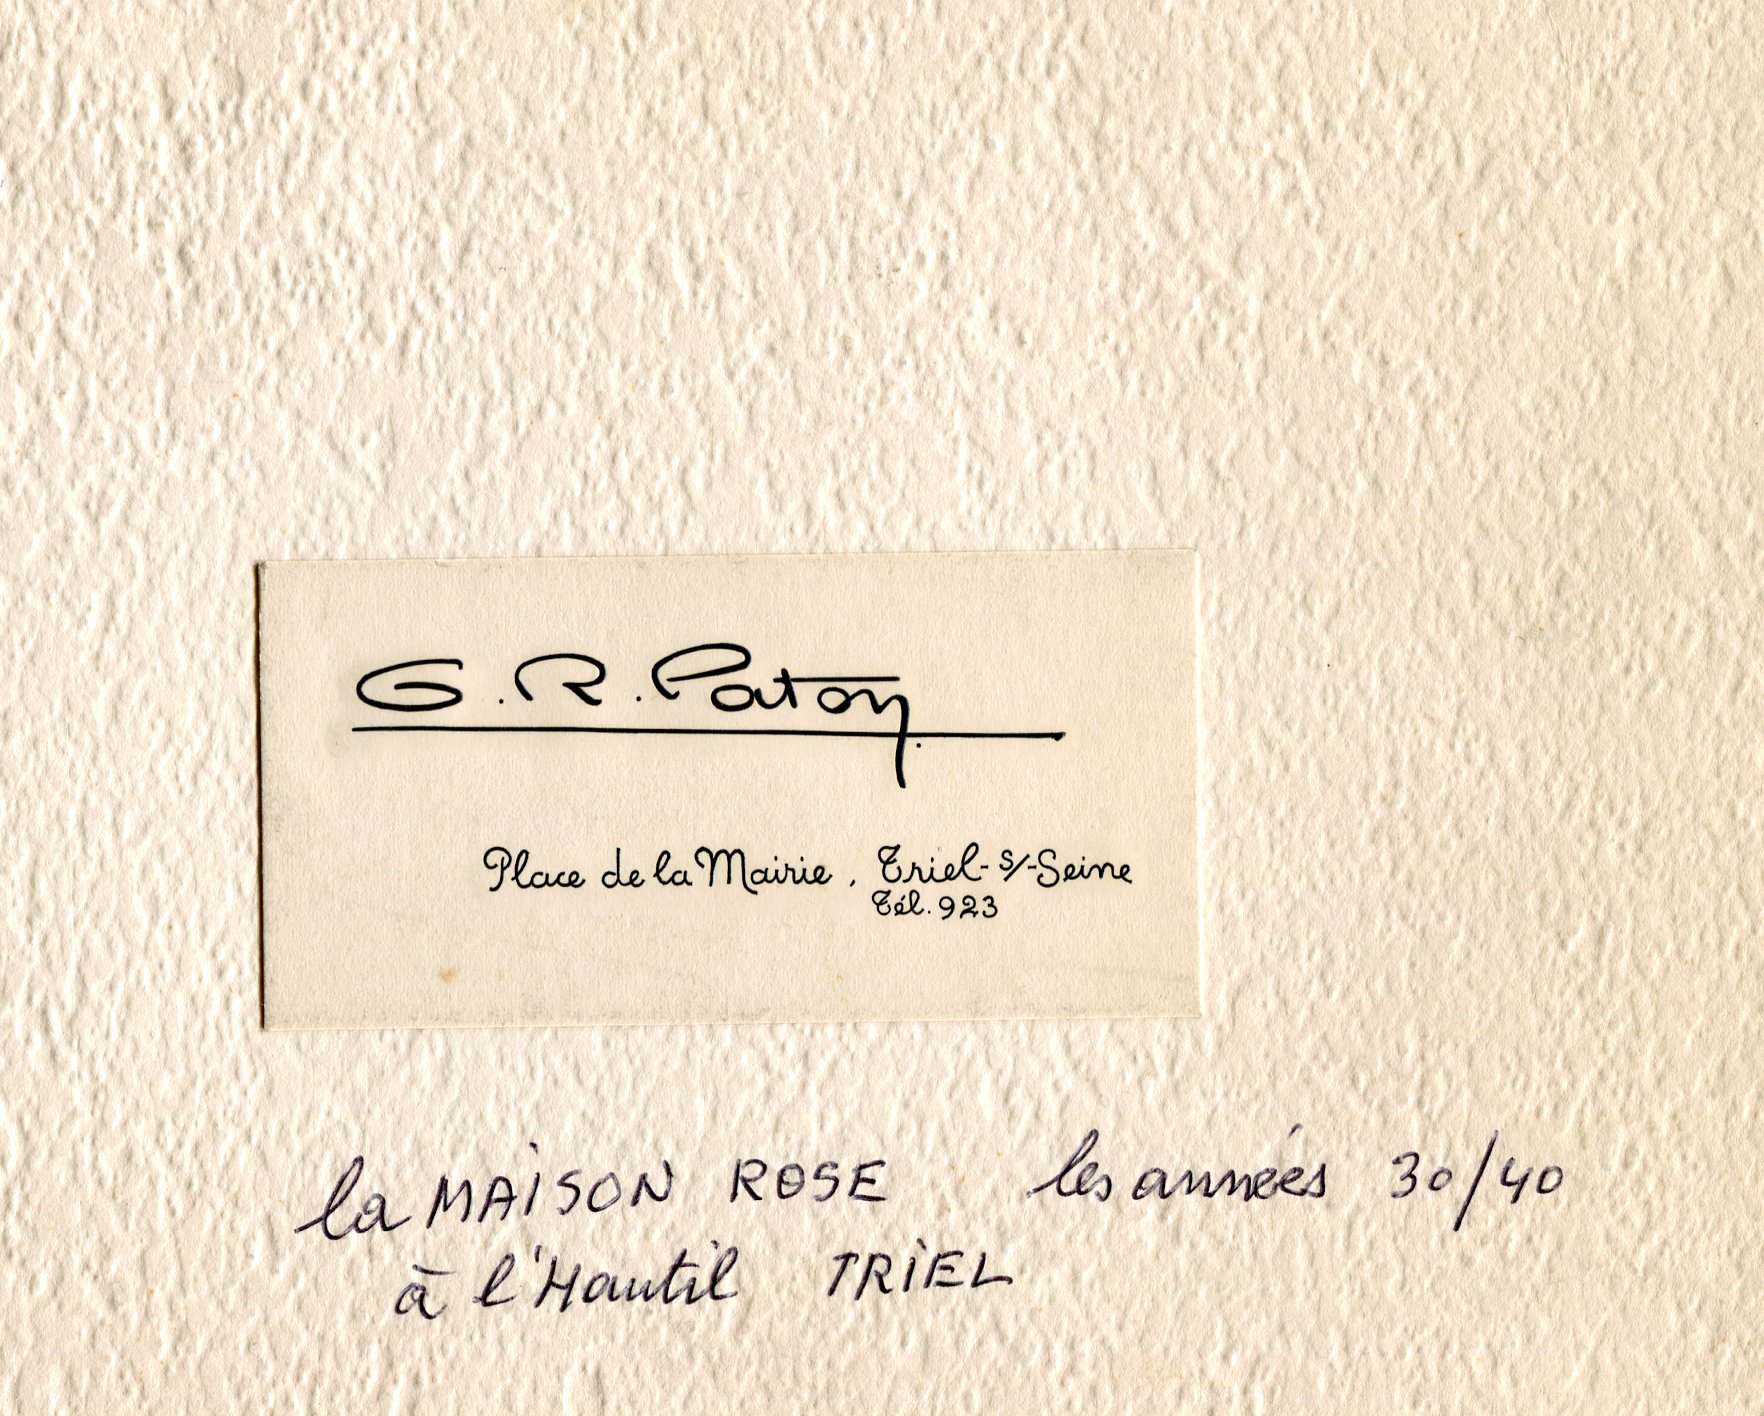 G. R. Paton
Place de la Mairie, Triel-s/-Seine
Tél. 923
la MAISON ROSE les années 30/40
à l'Hautil TRIEL